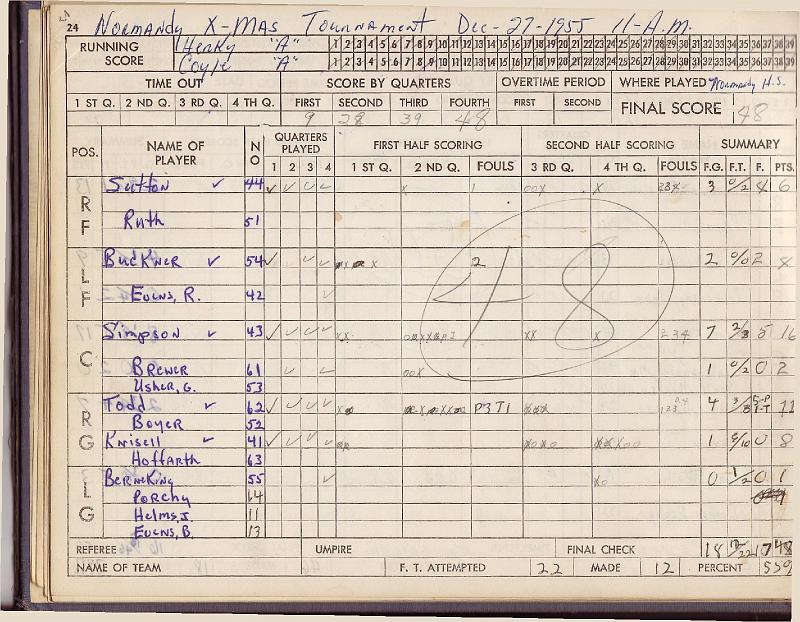 24 Normandy X-mas Tournament Dec-27-1955 11-A.M.
RUNNING SCORE
Henky "A" 1 2 3 4 5 6 7 8 9 10 11 12 13 14 15 16 17 18 19 20 21 22 23 24 25 26 27 28 29 30 31 32 33 34 35 36 37 38 39
Coyle "A" 1 2 3 4 5 6 7 8 9 10 11 12 13 14 15 16 17 18 19 20 21 22 23 24 25 26 27 28 29 30 31 32 33 34 35 36 37 38 39
TIME OUT SCORE BY QUARTERS OVERTIME PERIOD WHERE PLAYED Normandy H.S.
1 ST Q. 2 ND Q. 3 RD Q. 4 TH Q. FIRST SECOND THIRD FOURTH FIRST SECOND FINAL SCORE 48
9 28 39 48
POS. NAME OF PLAYER NO QUARTERS PLAYED FIRST HALF SCORING SECOND HALF SCORING SUMMARY
1 2 3 4 1 ST Q. 2 ND Q. FOULS 3 RD Q. 4 TH Q. FOULS F.G. F.T. F. PTS.
Sutton 44 x 1 00x x 234 3 0/2 4 6
RF
Ruth 51
Buckner 54 2 2 0/0 2
48
LF
Evens, R. 42
Simpson 43 xx xx x 234 7 2/3 5 16
C
Brewer 61 00x 1 0/2 0 2
Usher, G. 53
Todd 62 P3 T1 4 3/5 5-P 1-T 11
RG
Boyer 52
Knisell 41 1 6/10 0 8
Hoffarth 63
LG
Berneking 55 x0 0 1/2 0 1
Porchy 14
Helms, J. 11
Evens, B. 13
REFEREE UMPIRE FINAL CHECK 18 12/22 17 48
NAME OF TEAM F. T. ATTEMPTED 22 MADE 12 PERCENT 559